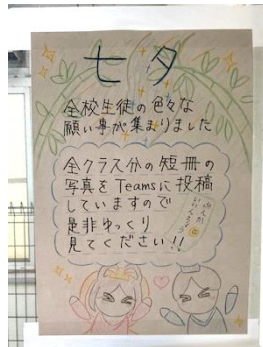 七夕
全校生徒の色々な
願い事が集まりました
全クラス分の短冊の
写真をTeamsに投稿
していますので
是非ゆっくり
見てください!!